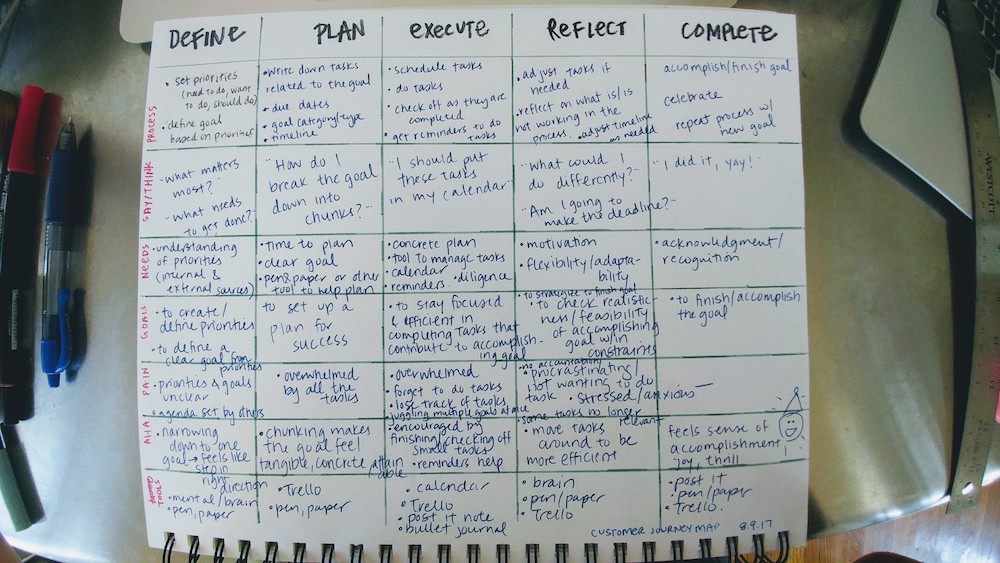 DEFINE PLAN EXECUTE REFLECT COMPLETE
PROCESS
• set priorities
(need to do, want
to do, should do)
• define goal
based on priorities
• write down tasks
related to the goal
• due dates
• goal category/type
• timeline
• schedule tasks
• do tasks
• check off as they are
completed
• get reminders to do
tasks
• adjust tasks if
needed
• reflect on what is/is
not working in the
process. • adjust timeline
as needed
accomplish/finish goal
celebrate
repeat process w/
new goal
SAY/THINK
"what matters
most?"
"what needs
to get done?"
"How do I
break the goal
down into
chunks?"
"I should put
these tasks
in my calendar"
"What could I
do differently?"
"Am I going to
make the deadline?"
"I did it, yay!"
NEEDS
• understanding
of priorities
(internal &
external sources)
• Time to plan
• clear goal
• pen & paper or other
tool to help plan
• concrete plan
• tool to manage tasks
• calendar
• reminders • diligence
• motivation
• flexibility/adapta-
bility
• acknowledgment/
recognition
GOALS
• to create/
define priorities
• to define a
clear goal from
priorities
• to set up a
plan for
success
• to stay focused
& efficient in
computing tasks that
contribute to accomplish-
ing goal
• to strategize to finish goal
• to check realistic-
ness/feasibility
of accomplishing
goal w/in
constraints
• to finish/accomplish
the goal
PAIN
• priorities & goals
unclear
• agenda set by others
• overwhelmed
by all the
tasks
• overwhelmed
• forget to do tasks
• lose track of tasks
juggling multiple goals at once
• no accountability
• procrastinating/
not wanting to do
task • stressed/anxious
• some tasks no longer
relevant
—
AHA
• narrowing
down to one
goal → feels like
step in
right
direction
• chunking makes
the goal feel
tangible, concrete, attain
able
• encouraged by
finishing/checking off
small tasks
• reminders help
• move tasks
around to be
more efficient
feels sense of
accomplishment
joy, thrill
TOOLS
• mental/brain
• pen, paper
• Trello
• pen, paper
• calendar
• Trello
• post it note
• bullet journal
• brain
• pen/paper
• Trello
• post it
• pen/paper
• Trello
CUSTOMER JOURNEY MAP 8.9.17
WESTCOTT